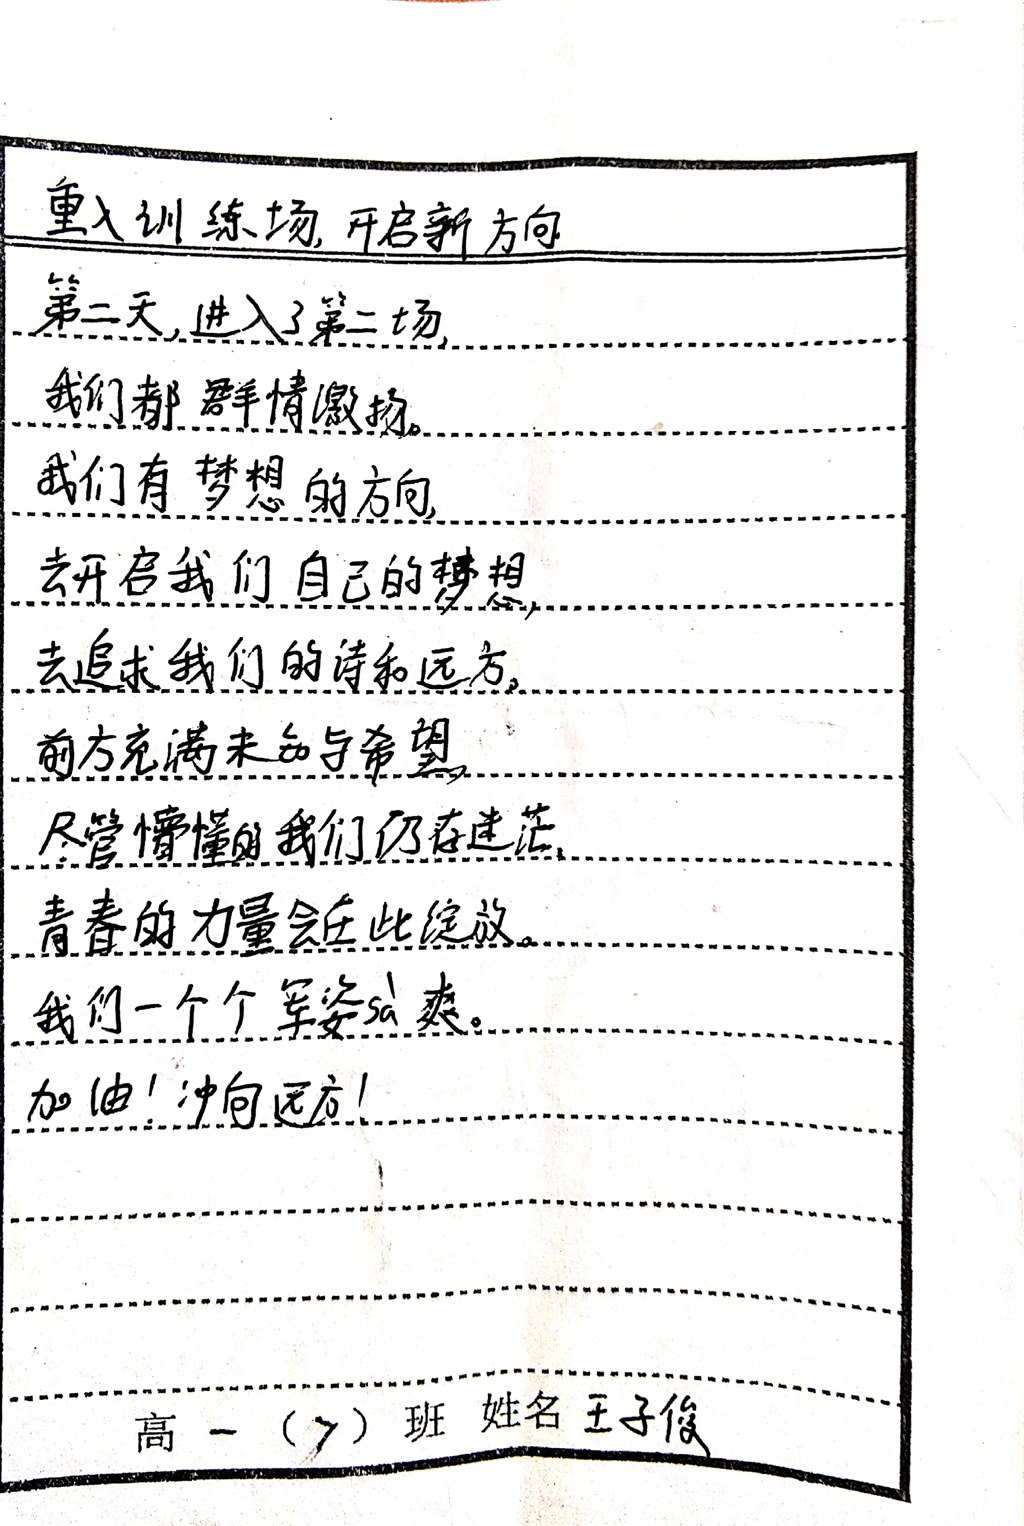 重入训练场,开启新方向
第二天,进入了第二场,
我们都群情激扬。
我们有梦想的方向,
去开启我们自己的梦想,
去追求我们的诗和远方。
前方充满未知与希望,
尽管懵懂的我们仍存迷茫,
青春的力量会在此绽放。
我们一个个军姿sà爽。
加油!冲向远方!
高一(7)班 姓名 王子俊